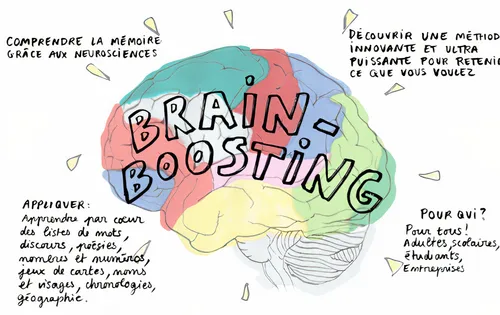 COMPRENDRE LA MÉMOIRE
GRÂCE AUX NEUROSCIENCES
DÉCOUVRIR UNE MÉTHOD
INNOVANTE ET ULTRA
PUISSANTE POUR RETENI
CE QUE VOUS VOULEZ
BRAIN-
BOOSTING
APPLIQUER:
Apprendre par cœur
des listes de mots,
discours, poésies,
nombres et numéros,
jeux de cartes, noms
et visages, chronologies,
géographie.
POUR QUI?
Pour tous!
Adultes, scolaires,
étudiants,
Entreprises